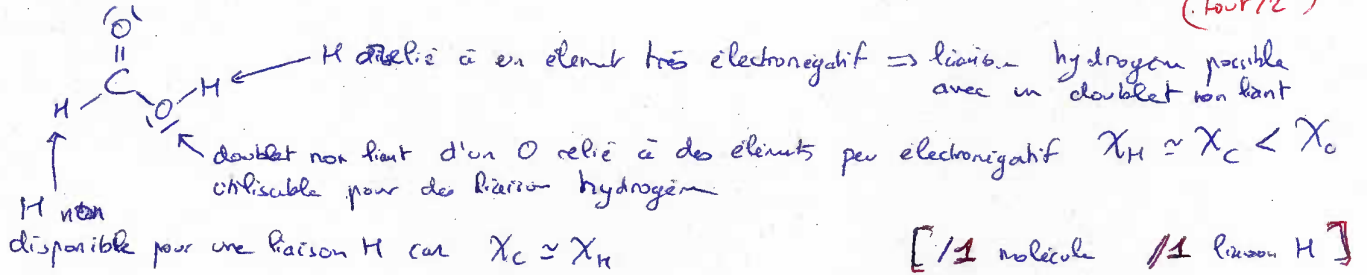 (tout/2)
O
H relié à un élément très électronégatif ⇒ liaison hydrogène possible
avec un doublet non liant
C
H O H
doublet non liant d'un O relié à des éléments peu électronégatif χH ≃ χC < χO
utilisable pour des liaison hydrogène
H non
disponible pour une liaison H car χC ≃ χH [/1 molécule /1 liaison H]